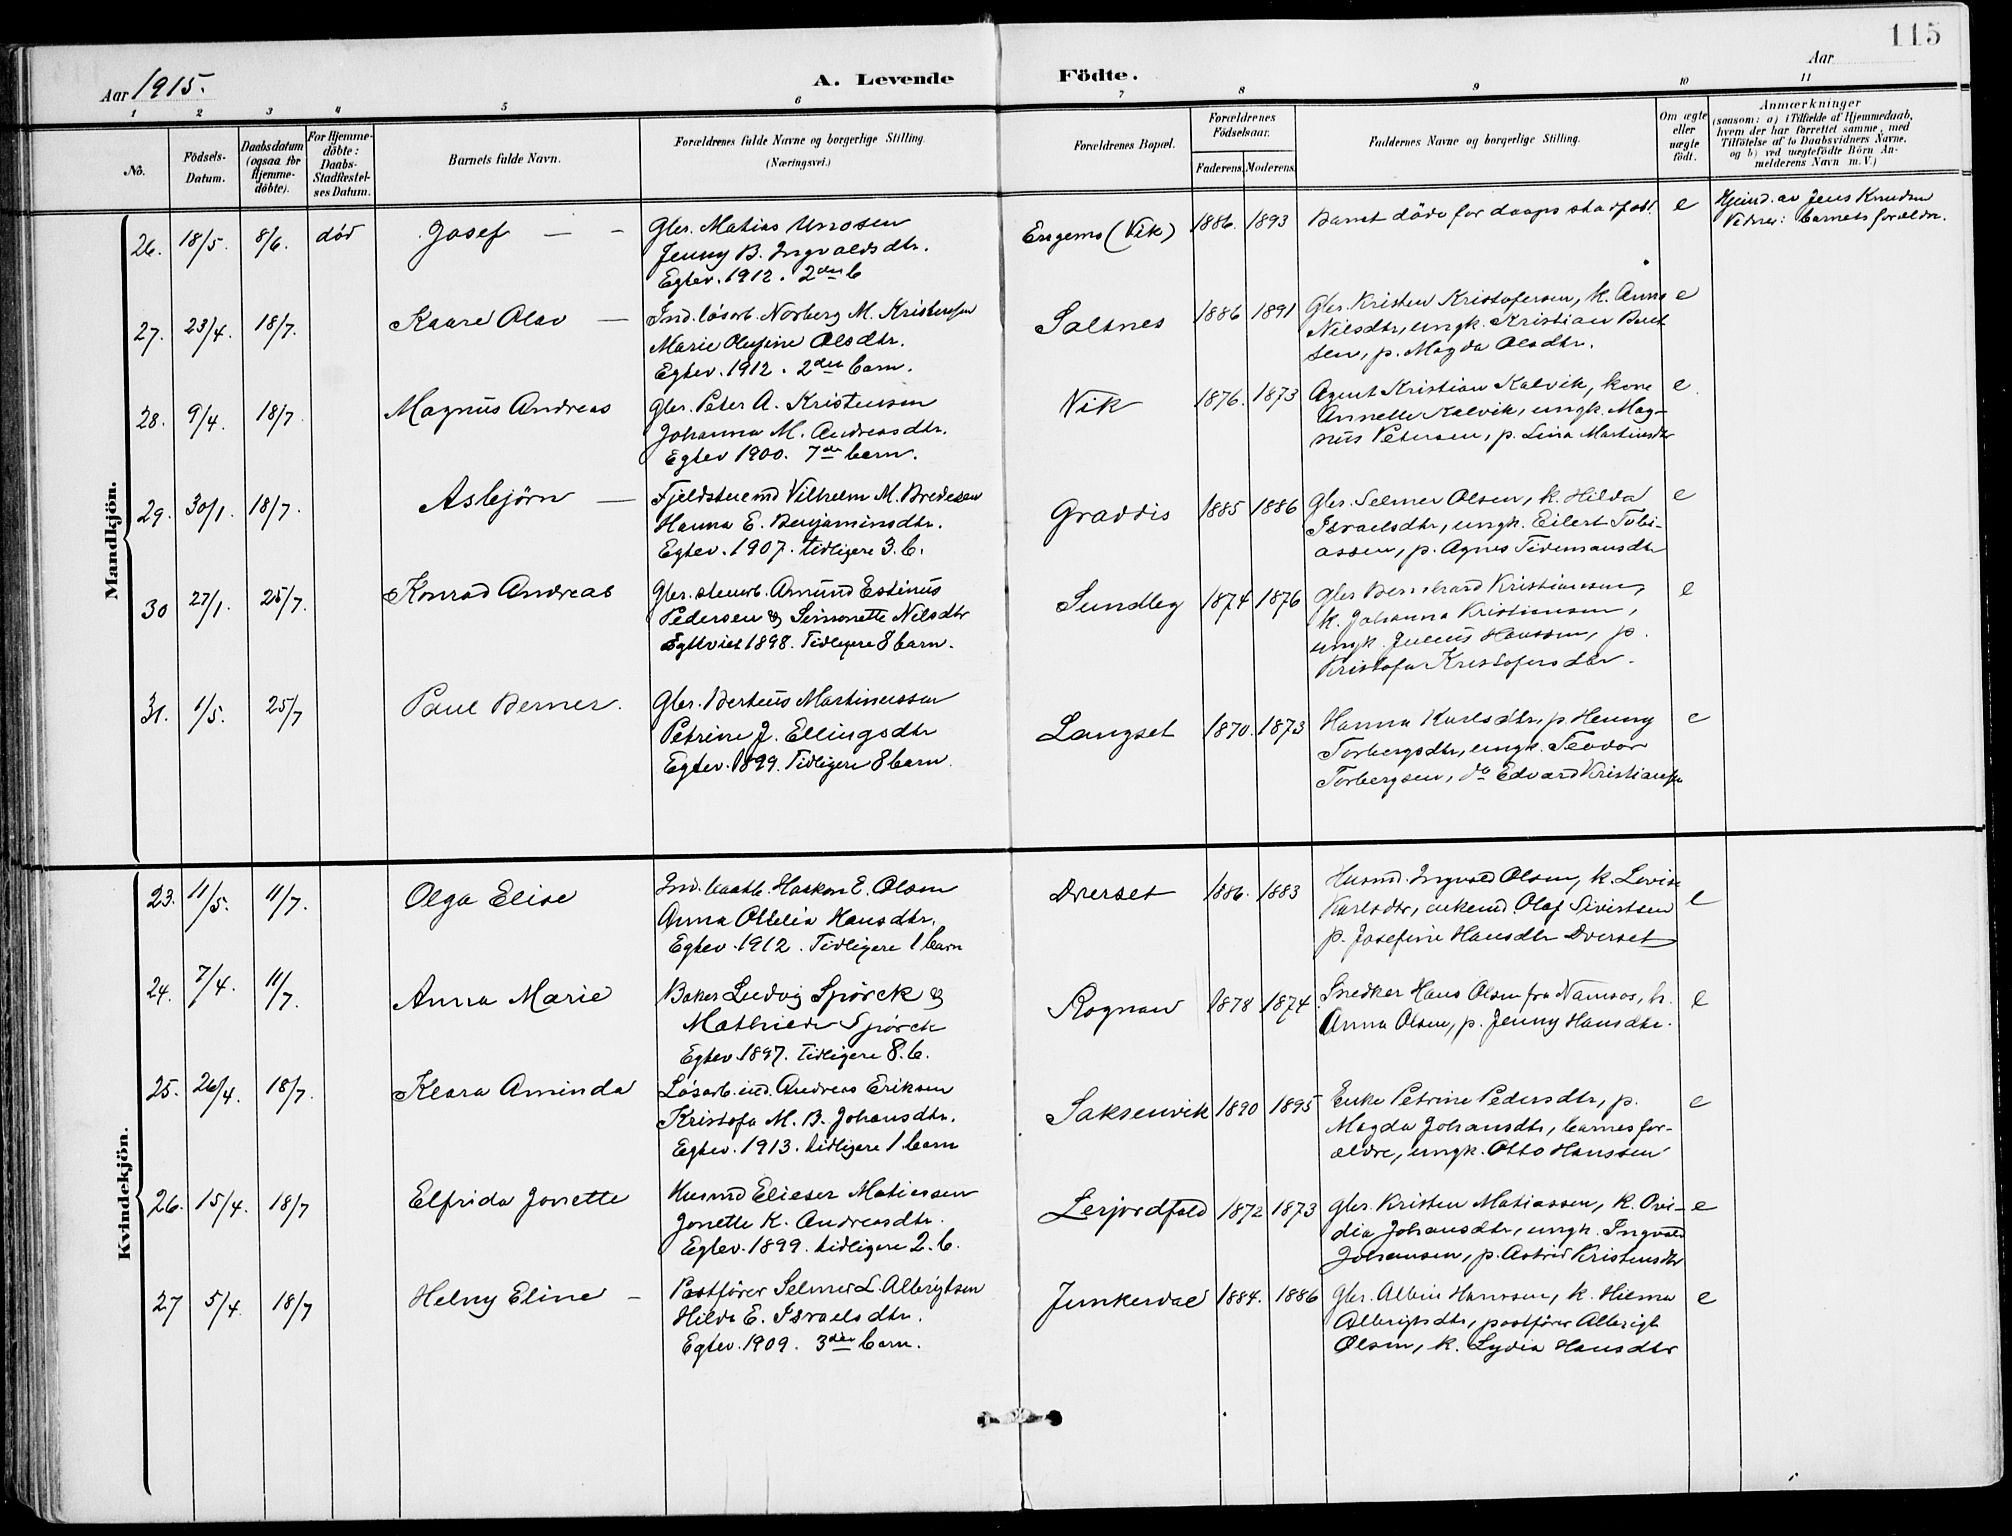 115
Aar 1915.
A. Levende Födte.
Aar
1 2 3 4 5 6 7 8 9 10 11
No.
Födsels-Datum.
Daabsdatum (ogsaa for Hjemme-döbte).
For Hjemme-döbte: Daabs-Stadfæstel-ses Datum.
Barnets fulde Navn.
Forældrenes fulde Navne og borgerlige Stilling.
(Næringsvei.)
Forældrenes Bopæl.
Forældrenes Födselsaar.
Faderens. Moderens.
Faddernes Navne og borgerlige Stilling.
Om ægte eller uægte födt.
Anmærkninger
(saasom: a) i Tilfælde af Hjemmedaab,
hvem der har forrettet samme, med
Tilföielse af to Daabsvidners Navne,
og b) ved uægtefödte Börn An-
melderens Navn m. V.)
Mandkjön.
26. 18/5. 8/6. död Josef — –
Gbr. Matias Unosen
Jenny B. Ingvaldsdtr.
Egtev. 1912. 2det b
Engemo (Vik) 1886. 1893
Barnet döde for daaps stadfest. e
Hjemd. av Jens Knudsen
Vidner: barnets forældre.
27. 23/4. 18/7. Kaare Olav —
Ind. løsarb. Norberg M. Kristensen
Marie Olufine Olsdtr.
Egtev. 1912. 2det barn.
Saltnes 1886 1891
Gbr. Kristen Kristofersen, k. Anna e
Nilsdtr, ungk. Kristian Bent
sen, p. Magda Olsdtr.
28. 9/4. 18/7. Magnus Andreas
Gbr. Peter A. Kristensen
Johanna M. Andreasdtr.
Egtev 1900. 7de barn.
Vik 1876. 1873
Agent Kristian Kalvik, kone e.
Annette Kalvik, ungk. Mag-
nus Petersen, p. Lina Martinsdtr
29. 30/1. 18/7. Asbjørn —
Fjeldstuemd Vilhelm M. Bredesen
Hanna E. Benjaminsdtr.
Egtev. 1907. tidligere 3. b.
Graddis 1885 1886
Gbr. Selmer Olsen, k. Hilda e
Israelsdtr, ungk. Eilert Tobi-
assen, p. Agnes Tidemansdtr
30 27/1. 25/7. Konrad Andreas
Gbr. stenarb. Amund Estinus
Pedersen & Simonette Nilsdtr
Egteviet 1898. Tidligere 8 barn.
Sundby 1874 1876
Gbr Bernhard Kristiansen, e
k. Johanna Kristiansen,
ungk. Julius Hanssen, p.
Kristofa Kristofersdtr.
31. 1/5. 25/7 Paul Berner.
Gbr. Berteus Martinussen
Petrine J. Ellingsdtr
Egtev. 1899. Tidligere 8 barn.
Langset 1870. 1873
Hanna Karlsdtr, p. Henny e
Torbergsdtr, ungk. Teodor
Torbergsen, do Edvard Kristiansen
Kvindekjön.
23. 11/5. 11/7. Olga Elise
Ind. baatb. Haakon E. Olsen
Anna Ottelia Hansdtr.
Egtev. 1912. Tidligere 1 barn
Dverset 1886. 1883
Husmd. Ingvald Olsen, k. Lovise
Karlsdtr, enkemd. Olaf Sivertsen e
p. Josefine Hansdtr Dverset
24. 7/4. 11/7. Anna Marie
Baker Ludvig Spörck &
Mathilde Spörck
Egtev. 1897. Tidligere 8. b.
Rognan 1878 1874.
Snedker Hans Olsen fra Namsos, k. e
Anna Olsen, p. Jenny Hansdtr.
25. 26/4. 18/7. Klara Aminda
Løsarb. ind. Andreas Eriksen
Kristofa M. B. Johansdtr.
Egtev. 1913. tidligere 1 barn
Saksenvik 1890 1895
Enke Petrine Pedersdtr, p. e
Magda Johansdtr, barnes for-
ældre, ungk. Otto Hanssen
26. 15/4. 18/7 Elfrida Jonette
Husmd Elieser Matiassen
Jonette K. Andreasdtr.
Egtev. 1899. tidligere 2. b.
Lerjordfald 1872 1873
Gbr. Kristen Matiassen, k. Ovi- e
dia Johansdtr, ungk. Ingvald
Johansen, p. Astrid Kristensdtr
27 5/4. 18/7 Helny Eline –
Postfører Selmer L. Albrigtsen
Hilda E. Israelsdtr.
Egtev. 1909. 3die barn.
Junkerdal 1884. 1886
Gbr. Albin Hanssen, k. Hilma e
Albrigtsdtr, postfører Albrigt
Olsen, k. Lydia Hansdtr